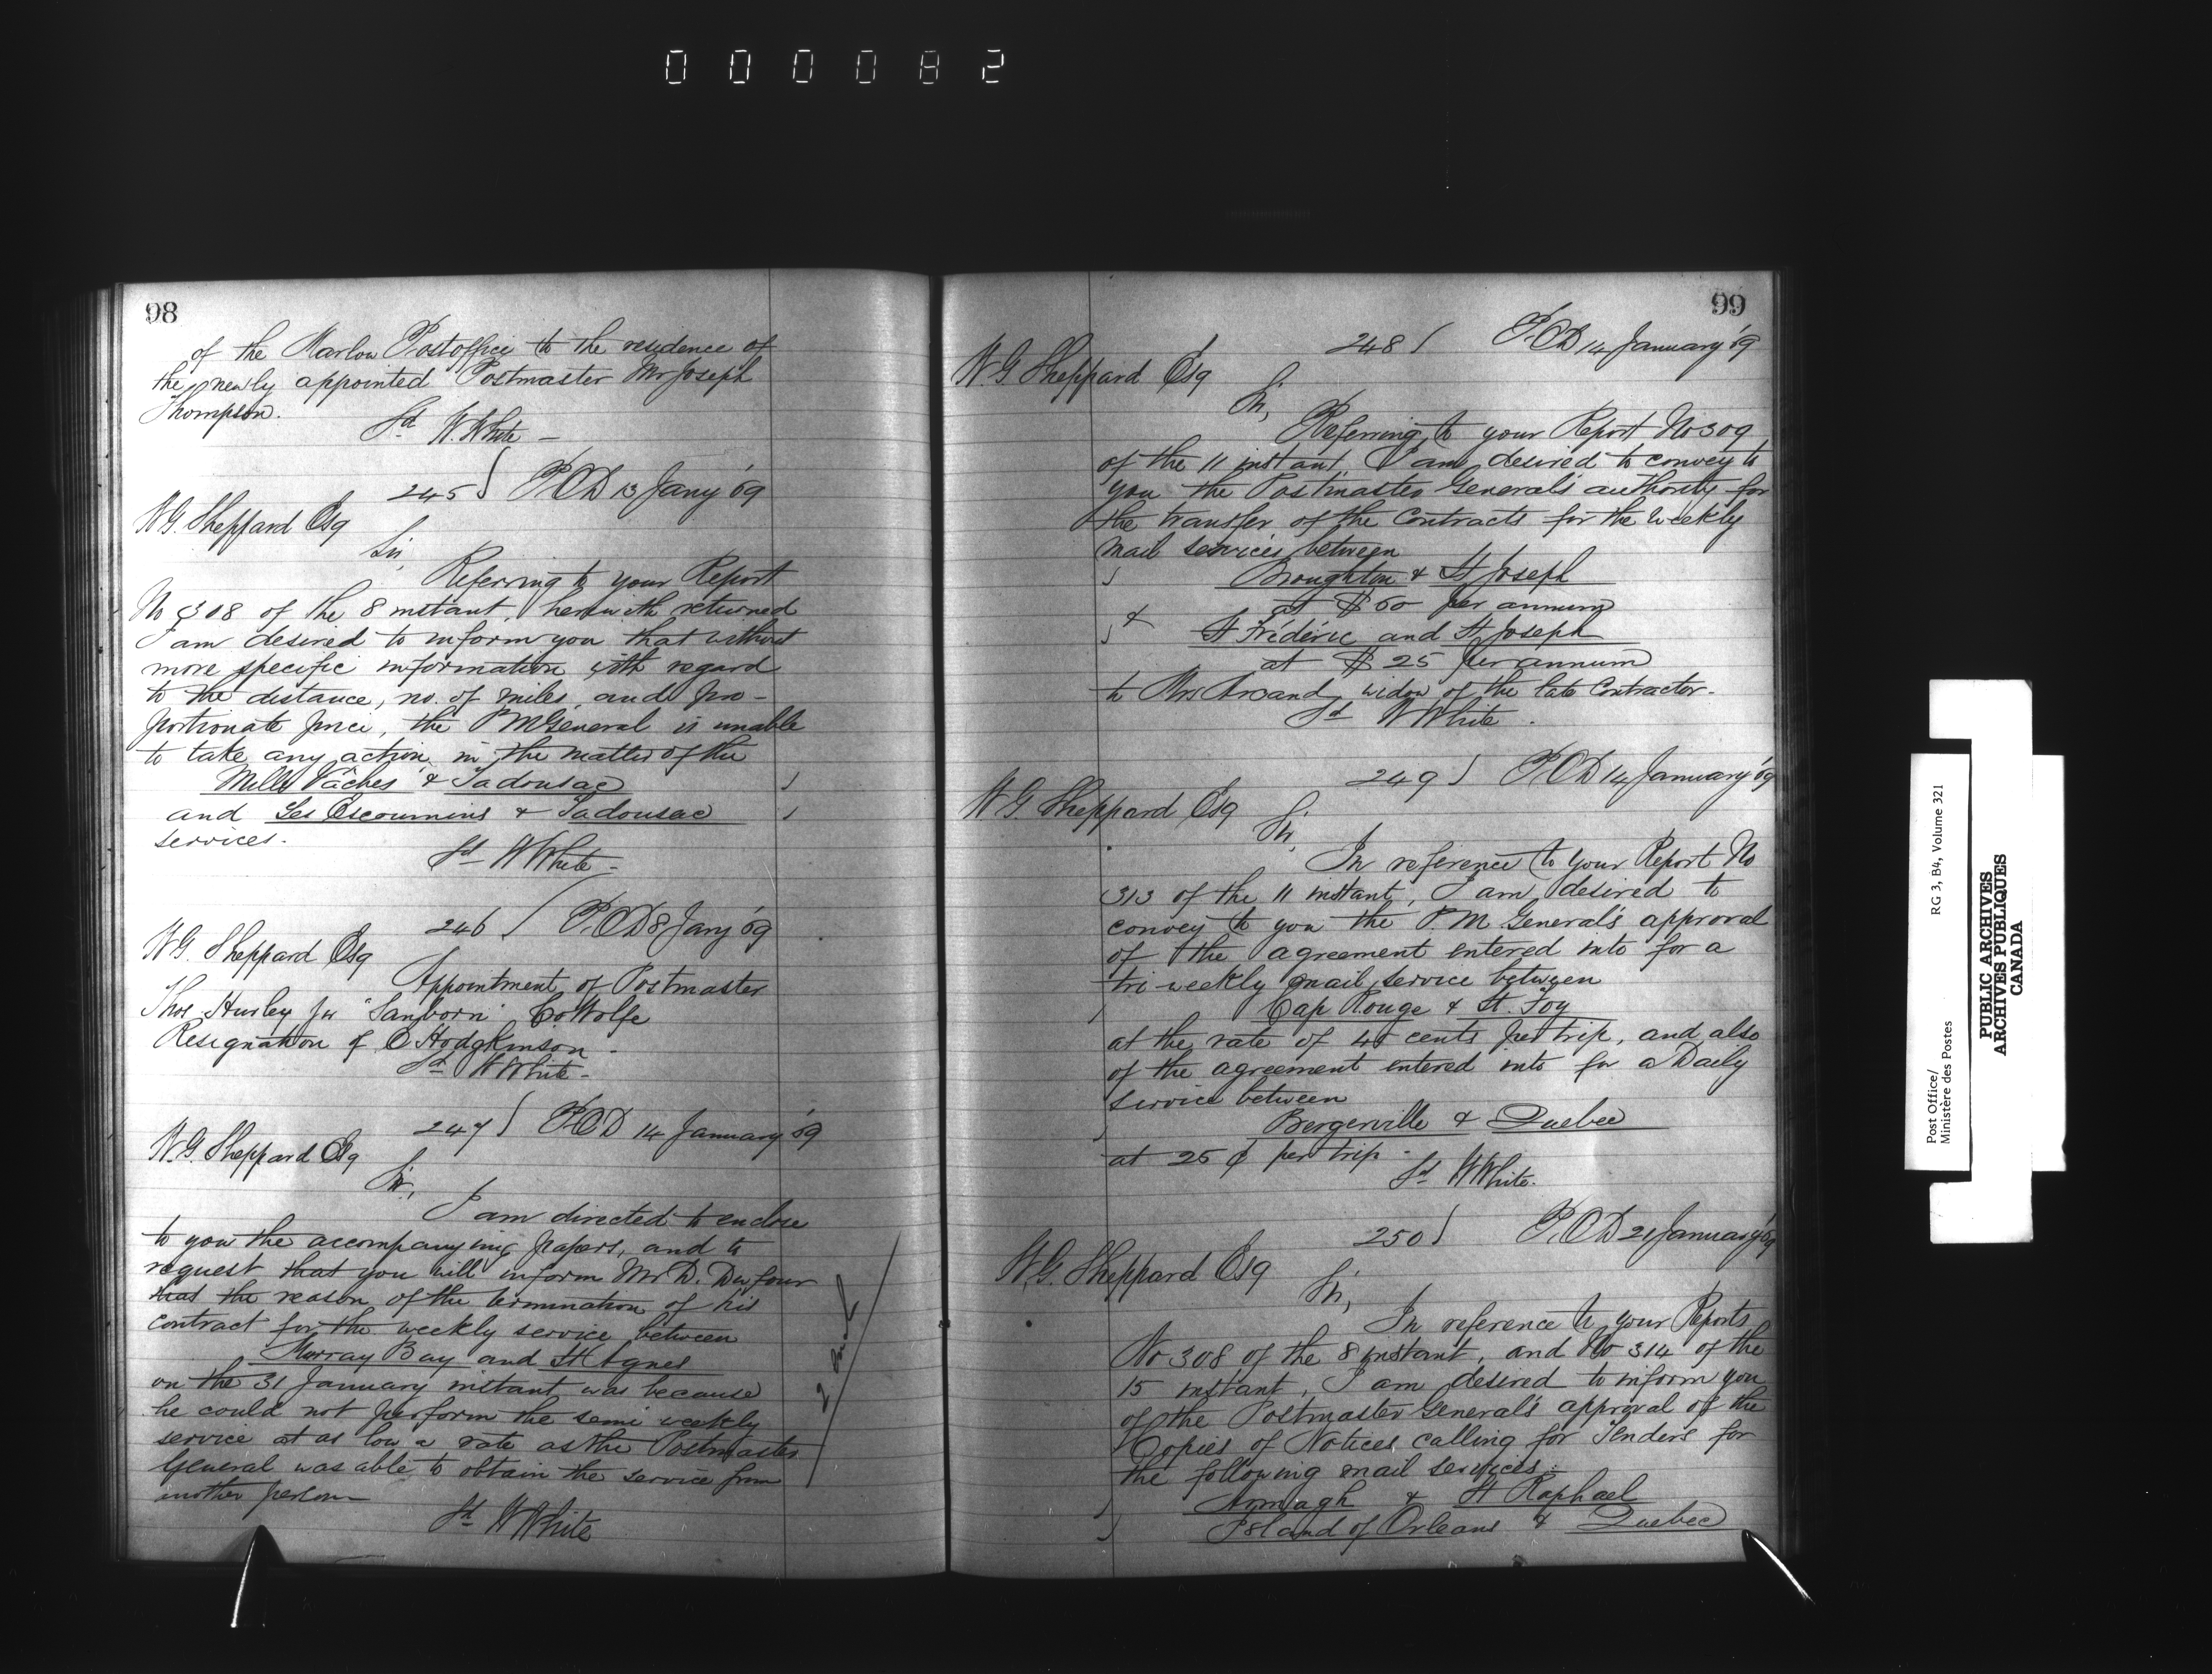 000082
98
of the Marlow Postoffice to the residence of
the newly appointed Postmaster Mr Joseph
Thompson.
Sd W. White –
245 P.O.D 13 Jany '69
W.G. Sheppard Esq
Sir,
Referring to your Report
No 308 of the 8 instant, herewith returned
I am desired to inform you that without
more specific information with regard
to the distance, no. of miles, and pro-
portionate price, the P M General is unable
to take any action in the matter of the
Mille Vâches & Tadousac
and Les Escoumins & Tadousac
services.
Sd W White –
246 P.O.D 8 Jany '69
W.G. Sheppard Esq
Appointment of Postmaster
Thos Hurley Jr "Sanborn" Co Wolfe
Resignation of C Hodgkinson.
Sd W White –
247 P.O.D 14 January '69
W.G. Sheppard Esq
Sir,
I am directed to enclose
to you the accompanying papers, and to
request that you will inform Mr D. Dufour
that the reason of the termination of his
contract for the weekly service between
Murray Bay and St Agnes
on the 31 January instant was because
he could not perform the semi weekly
service at as low a rate as the Postmaster
General was able to obtain the service from
another person
Sd W White
99
248 P.O.D 14 January '69
W.G. Sheppard Esq
Sir,
Referring to your Report No 309
of the 11 instant, I am desired to convey to
you the Postmaster General's authority for
the transfer of the Contracts for the weekly
mail services between
Broughton & St Joseph
at $60 per annum
& St Fréderic and St Joseph
at $25 per annum
to Mrs Arcand, widow of the late Contractor.
Sd W White.
249 P.O.D 14 January '69
W.G. Sheppard Esq
Sir,
In reference to your Report No
313 of the 11 instant, I am desired to
convey to you the P.M. General's approval
of the agreement entered into for a
tri-weekly mail service between
Cap Rouge & St. Foy
at the rate of 45 cents per trip, and also
of the agreement entered into for a Daily
service between
Bergerville & Quebec
at 25 ¢ per trip.
Sd W White.
250 P.O.D 21 January '69
W.G. Sheppard Esq
Sir,
In reference to your Reports
No 308 of the 8 instant, and No 314 of the
15 instant, I am desired to inform you
of the Postmaster General's approval of the
Copies of Notices calling for Tenders for
the following mail services:
Armagh & St Raphael
Island of Orleans & Quebec
Post Office/
Ministère des Postes
RG 3, B4, Volume 321
PUBLIC ARCHIVES
ARCHIVES PUBLIQUES
CANADA